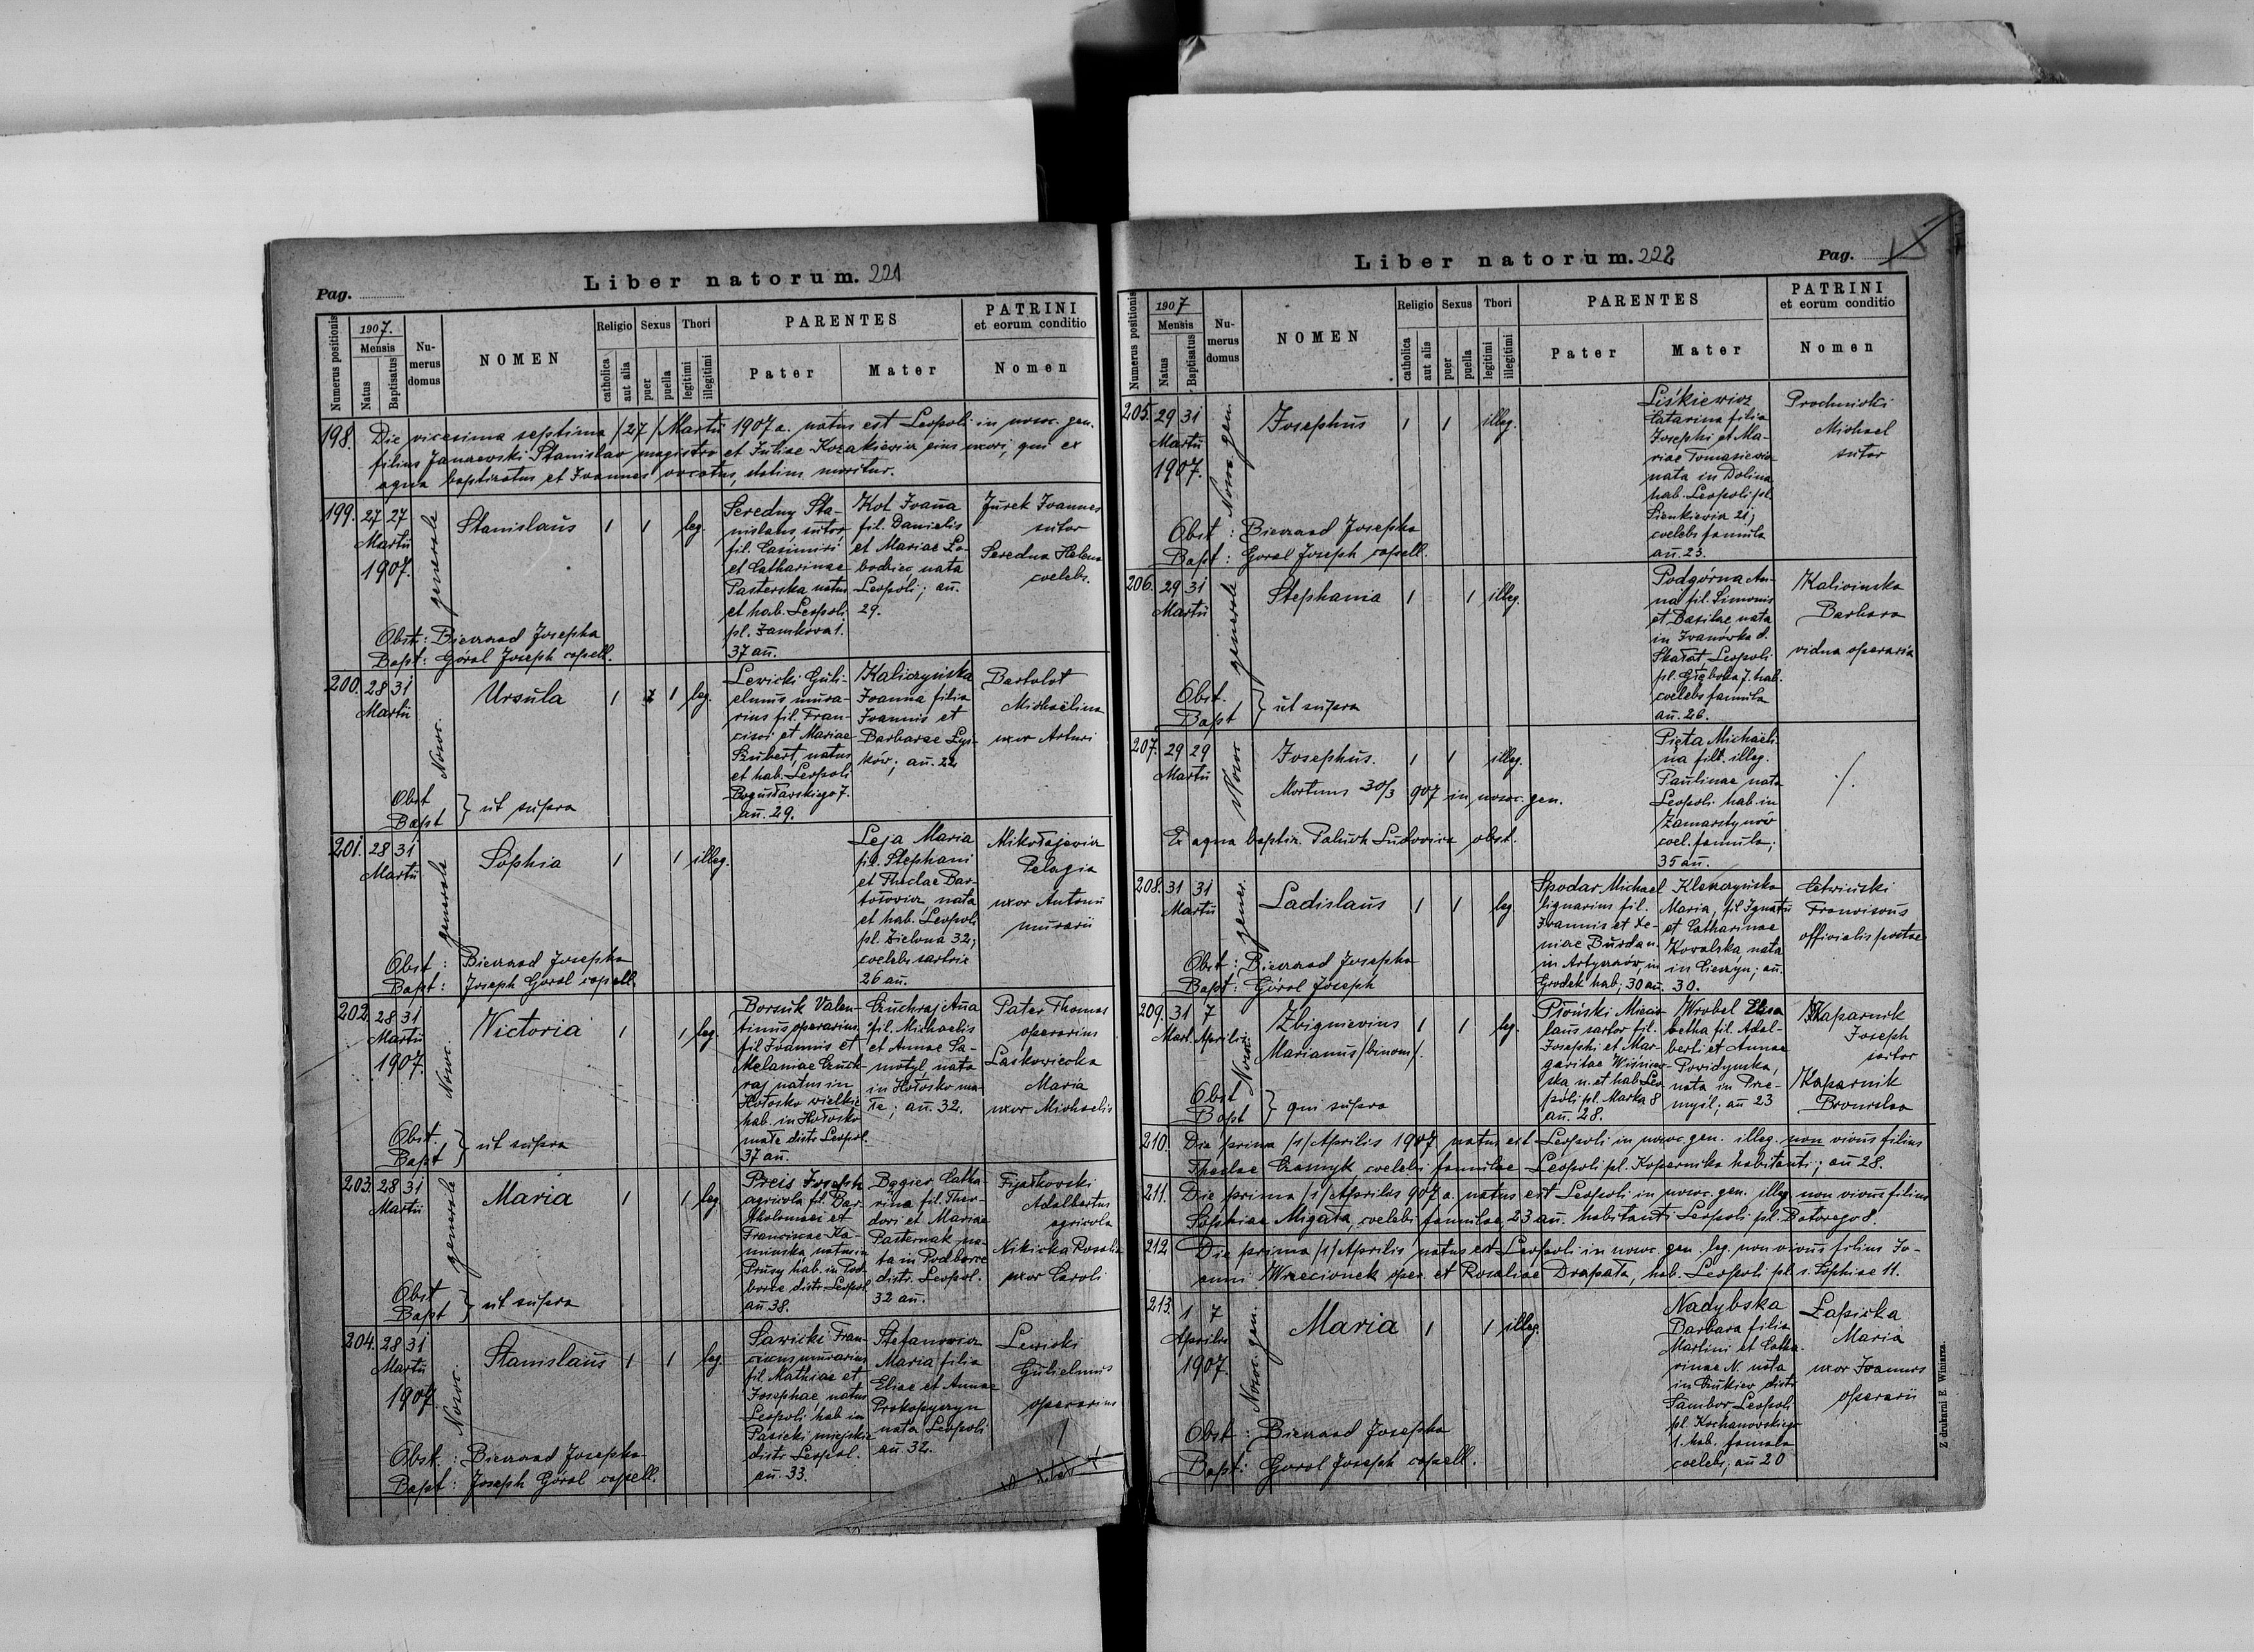 Pag.
Liber natorum. 221
Numerus positionis
1907.
Mensis
Natus
Baptisatus
Nu-
merus
domus
NOMEN
Religio
catholica
aut alia
Sexus
puer
puella
Thori
legitimi
illegitimi
PARENTES
Pater
Mater
PATRINI
et eorum conditio
Nomen
198. Die vicesima septima /27/ Martii 1907 a. natus est Leopoli in nosoc. gen.
filius Janzewski Stanislao magistro et Juliae Kozakiewicz eius uxori, qui ex
aqua baptizatus et Joannes vocatus, statim moritur.
199. 27 27
Martii
1907.
generale
Stanislaus
1 1 leg.
Seredny Sta-
nislaus, sutor,
fil. Casimiri
et Catharinae
Pasterska natus
et hab. Leopoli
pl. Zamkowa 1.
37 an̄.
Kot Joan̄a
fil. Danielis
et Mariae Ło-
bodziec nata
Leopoli; an̄.
29.
Jurek Joannes
sutor
Seredna Helena
coelebs.
Obst: Bierzad Josepha
Bapt: Góral Joseph copell.
200. 28 31
Martii
Nosoc.
Ursula
1 1 leg.
Lewicki Guli-
elmus mura-
rius fil. Fran-
cisci et Mariae
Szubert, natus
et hab. Leopoli
Bogusławskiego 7.
an̄. 29.
Kaliczyńska
Joanna filia
Joannis et
Barbarae Łys-
ków; an̄. 22
Bartolot
Michaëlina
uxor Arturi
Obst
Bapt } ut supra
201. 28 31
Martii
generale
Sophia
1 1 illeg.
Leja Maria
fil. Stephani
et Theclae Bar-
tosowicz, nata
et hab. Leopoli
pl. Zielona 32;
coelebs sartrix
26 an̄.
Mikołajewicz
Pelagia
uxor Antonii
murarii
Obst : Bierzad Josepha
Bapt : Joseph Góral copell.
202. 28 31
Martii
1907.
Nosoc.
Victoria
1 1 leg.
Borsuk Valen-
tinus, operarius
fil. Joannis et
Melaniae Czuch-
raj natus in
Hołosko wielkie
hab. in Hołosko
małe distr. Leopol.
37 an̄.
Czuchraj An̄a
fil. Michaelis
et Annae Sa-
motyl, nata
in Hołosko ma-
łe; an̄. 32.
Pater Thomas
operarius
Laskowiecka
Maria
uxor Michaelis
Obst.
Bapt } ut supra
203. 28 31
Martii
generale
Maria
1 1 leg.
Preis Joseph
agricola fil. Bar-
tholomaei et
Franciscae Ka-
minska, natus in
Prusy hab. in Pod-
borce distr. Leopol.
an̄. 38.
Bggier Catha-
rina fil. Theo-
dori et Mariae
Pasternak na-
ta in Podborce
distr. Leopol.
32 an̄.
Fijałkowski
Adalbertus
agricola
Nikicka Rosalia
uxor Caroli
Obst
Bapt } ut supra
204. 28 31
Martii
1907.
Nosoc.
Stanislaus
1 1 leg.
Sawicki Fran-
ciscus murarius
fil. Mathiae et
Josephae natus
Leopoli hab in
Pasieki miejskie
distr. Leopol.
an̄. 33.
Stefanowicz
Maria filia
Eliae et Annae
Prokopyszyn
nata Leopoli
an̄. 32.
Lewicki
Gulielmus
operarius
Obst. : Bierzad Josepha
Bapt : Joseph Góral copell.
Liber natorum. 222
Pag.
Numerus positionis
1907
Mensis
Natus
Baptisatus
Nu-
merus
domus
NOMEN
Religio
catholica
aut alia
Sexus
puer
puella
Thori
legitimi
illegitimi
PARENTES
Pater
Mater
PATRINI
et eorum conditio
Nomen
205. 29 31
Martii
1907.
Nosoc. gen.
Josephus
1 1 illeg.
Liśkiewicz
Catarina filia
Josephi et Ma-
riae Tomasiewicz
nata in Dolina
hab. Leopoli pl.
Sienkiewicz 21;
coelebs famula
an̄. 23.
Prochnicki
Michael
sutor
Obst : Bierzad Josepha
Bapt : Goral Joseph copell.
206. 29 31
Martii
generale
Stephania
1 1 illeg.
Podgórna An-
na fil. Simonis
et Basilae nata
in Iwanówka d.
Skałat, Leopoli
pl. Głęboka 7. hab.
coelebs famula
an̄. 26.
Kalicinska
Barbara
vidua operaria
Obst.
Bapt } ut supra
207. 29 29
Martii
Nosoc.
Josephus.
1 1 illeg.
Mortuus 30/3 907 in nosoc. gen.
Pięta Michaëli-
na filia illeg.
Paulinae nata
Leopoli hab in
Zamarstynów
coel. famula;
35 an̄.
./.
Ex aqua baptiz. Paluch Ludovica obst.
208. 31 31
Martii
gener.
Ladislaus
1 1 leg.
Spodar Michael
lignarius fil.
Joannis et Xe-
niae Burda n.
in Artyszczów, in
Grodek hab; 30 an̄.
Kleszczyńska
Maria, fil Ignatii
et Catharinae
Kovalska, nata
in Cieszyn; an̄.
30.
Cetwiński
Franciscus
officialis postae
Obst : Bierzad Josepha
Bapt : Góral Joseph
209. 31 7
Mart. Aprilis
Nosoc.
Zbignievius
Marianus /binom/.
1 1 leg.
Płoński Miecis-
laus sartor fil.
Josephi et Mar-
garitae Wiśniew-
ska n. et hab. Leo-
poli pl. Marka 8
an̄. 28.
Wrobel Elisa
betha fil. Adal-
berti et Annae
Powidynska,
nata in Prze-
myśl; an̄ 23
Kaparnik
Joseph
sartor
Kaparnik
Bronislaa
Obst
Bapt } qui supra
210. Die prima /1/ Aprilis 1907 natus est Leopoli in nosoc. gen. illeg. non vivus filius
Theclae Czasnyk coelebi famulae Leopoli pl. Kopernika habitanti; an̄ 28.
211. Die prima /1/ Aprilis 907 a. natus est Leopoli in nosoc. gen. illeg. non vivus filius
Sophiae Migata, coelebi famulae, 23 an̄. habitanti Leopoli pl. Batorego 8.
212 Die prima /1/ Aprilis natus est Leopoli in nosoc. gen. leg. non vivus filius Jo-
anni Wrzecionek oper. et Rosaliae Drapała, hab. Leopoli pl. s. Sophiae 11.
213. 1 7
Aprilis
1907.
Nosoc. gen.
Maria
1 1 illeg.
Nadybska
Barbara filia
Martini et Catha-
rinae N. nata
in Czukiew distr.
Sambor Leopoli
pl. Kochanowskiego
1. hab. famula
coelebs; an̄ 20
Łapicka
Maria
uxor Joannis
operarii
Obst : Bierzad Josepha
Bapt : Goral Joseph copell.
Z drukarni E. Winiarza.